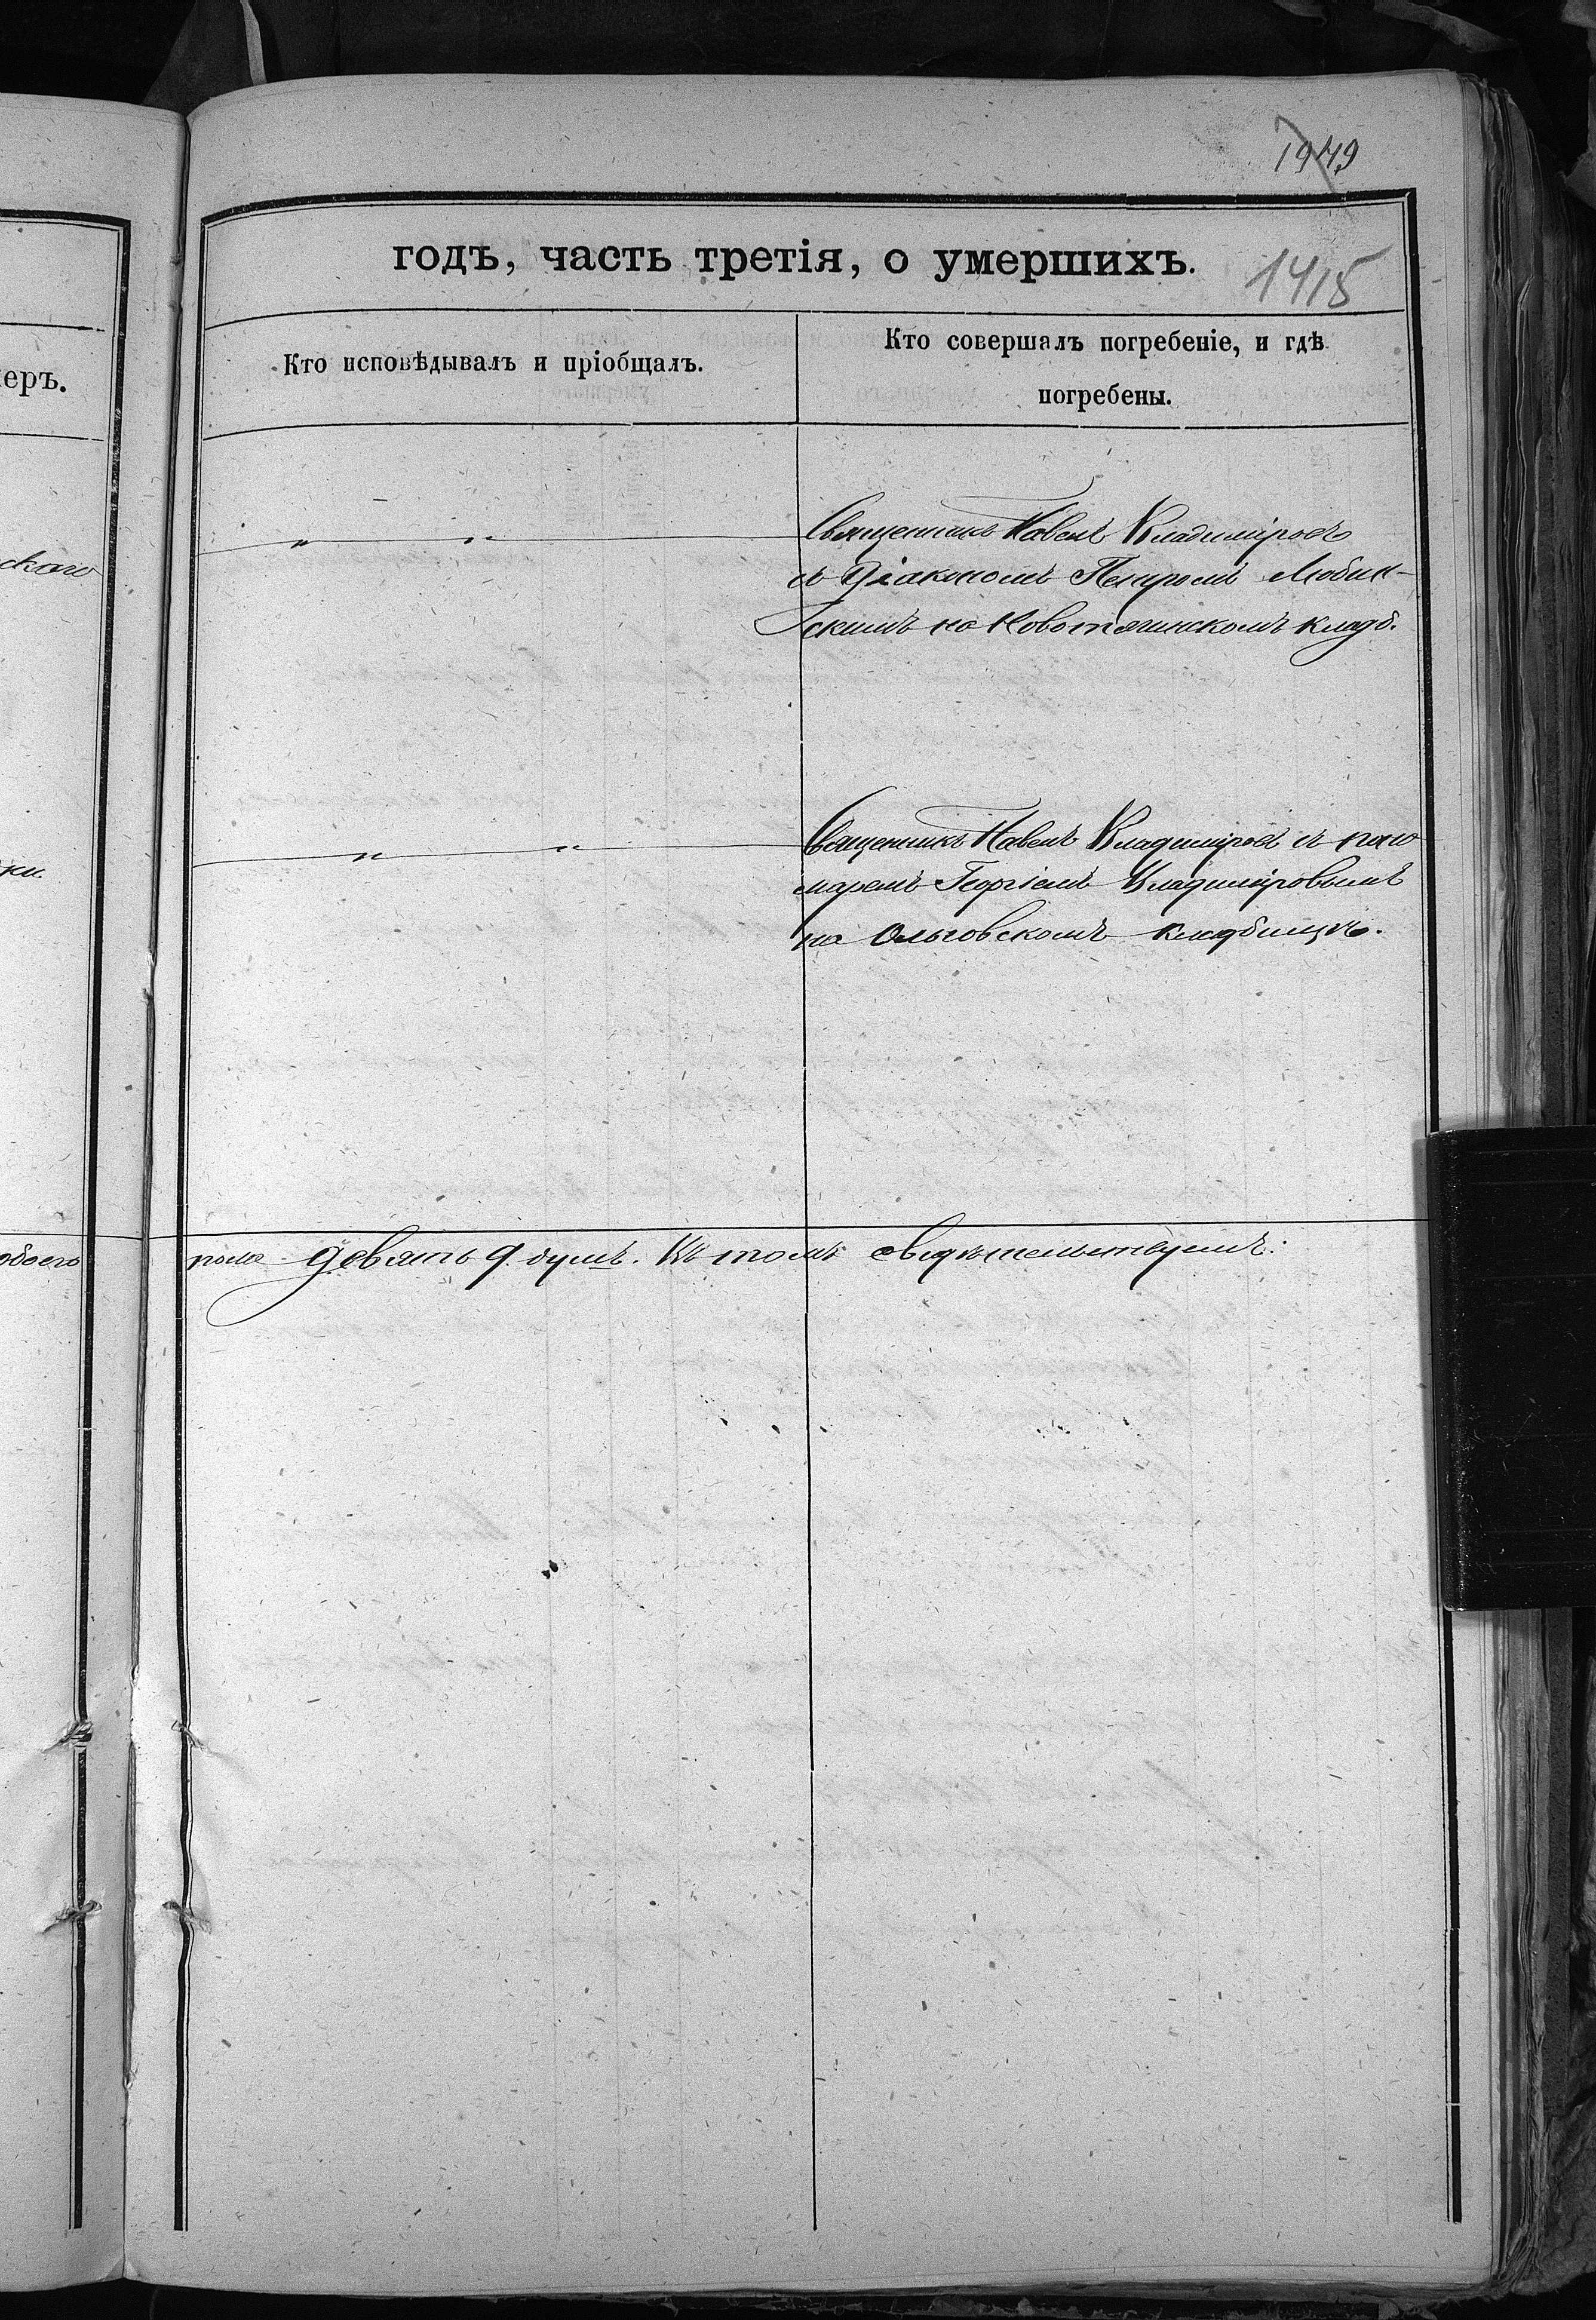 1949
годъ, часть третія, о умершихъ.
1415
еръ.
Кто исповѣдывалъ и пріобщалъ.
Кто совершалъ погребеніе, и гдѣ
погребены.
скаго
— „ — „ —
Священникъ Павелъ Владиміровъ
съ Діакономъ Петромъ Лобин-
скимъ на Новотягинскомъ кладб.
— „ — „ —
Священникъ Павелъ Владиміровъ съ поно
маремъ Георгіемъ Владиміровымъ
на Ольговскомъ кладбищѣ.
обоего пола девять 9. душъ. Въ томъ свидѣтельствуемъ: